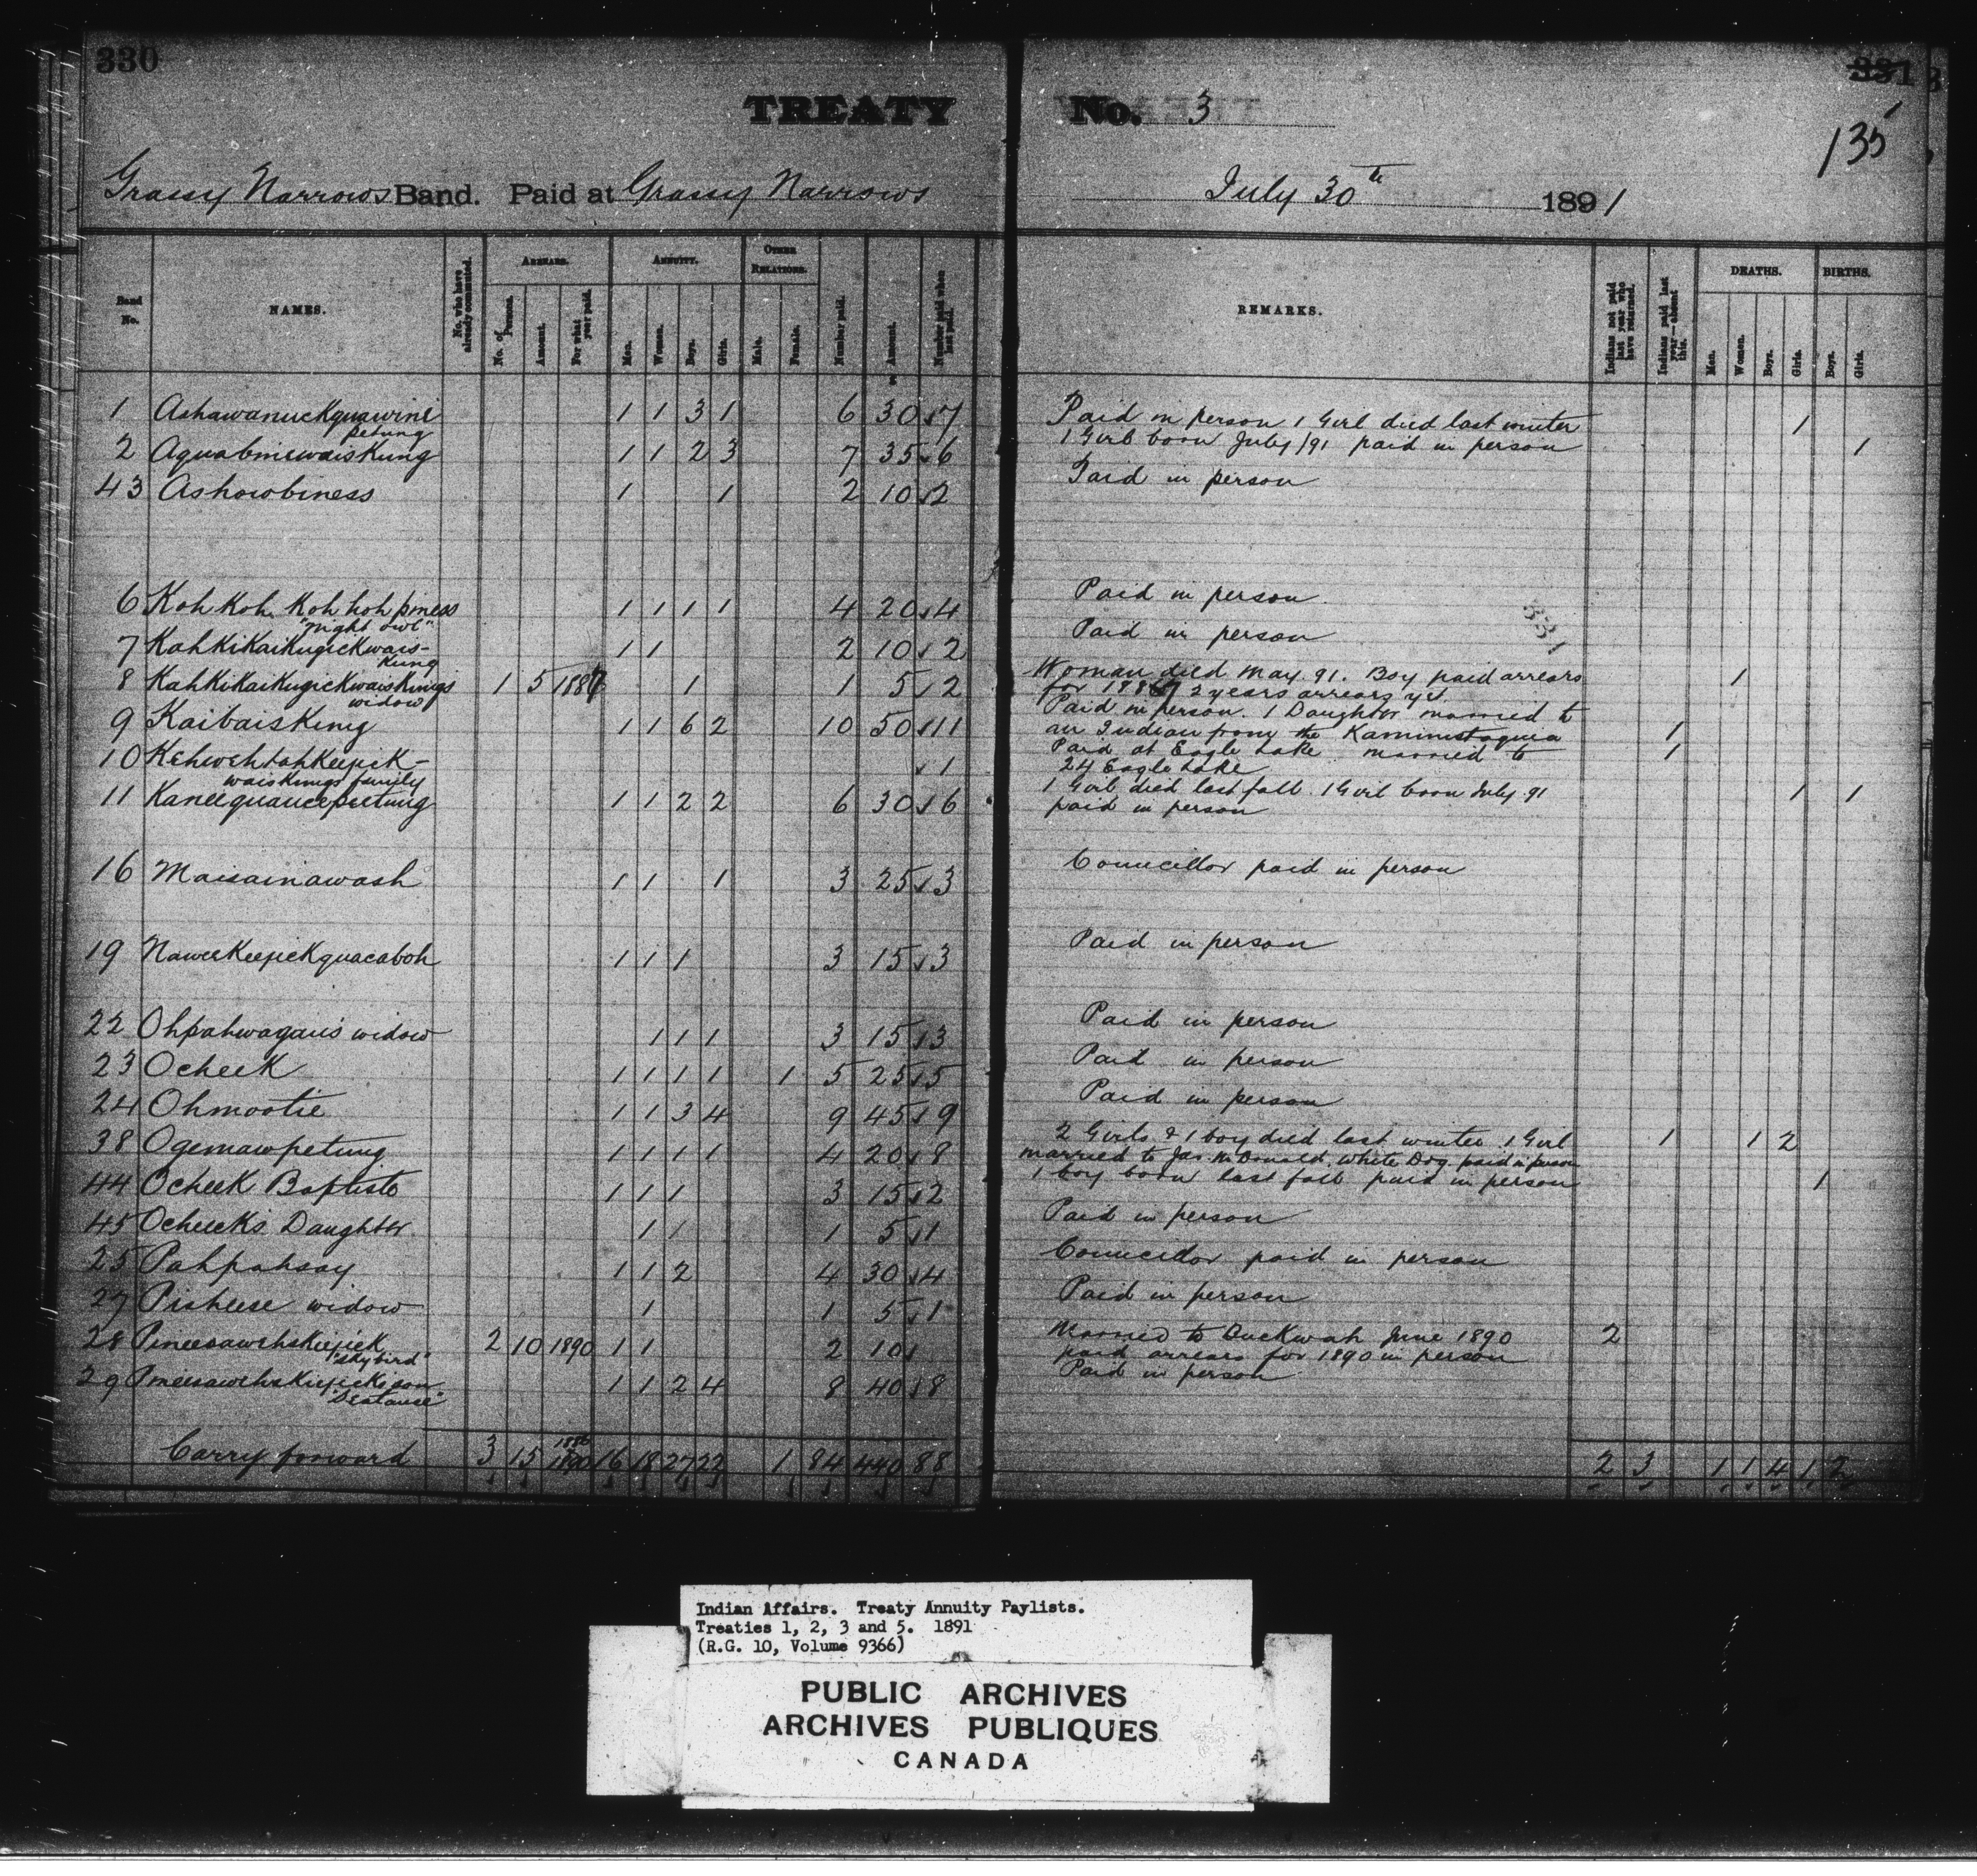 330
331
135
TREATY No. 3
Grassy Narrows Band. Paid at Grassy Narrows July 30th 1891
Band No. NAMES. No. who have already commuted. ARREARS. No. of Persons. Amount. For what year paid. ANNUITY. Men. Women. Boys. Girls. OTHER RELATIONS. Male. Female. Number paid. Amount. Number paid when last paid. REMARKS. Indians not paid last year who have returned. Indians paid last year—absent this. DEATHS. Men. Women. Boys. Girls. BIRTHS. Boys. Girls.
1 Ashawanuckquawini 1 1 3 1 6 30 7 Paid in person 1 Girl died last winter 1
petung
2 Aquabinewaiskung 1 1 2 3 7 35 6 1 Girl born July /91 paid in person 1
43 Ashowbiness 1 1 2 10 2 Paid in person
6 Koh Koh Koh hoh piness 1 1 1 1 4 20 4 Paid in person
"night owl"
331
7 KahKiKaiKugicKwais- 1 1 2 10 2 Paid in person
Kung
8 KahKiKaiKugicKwaisKungs 1 5 1887 1 1 5 2 Woman died May. 91. Boy paid arrears 1
widow for 1887 2 years arrears yet
9 KaibaisKung 1 1 6 2 10 50 11 Paid in person. 1 Daughter married to
an Indian from the Kaministaquia 1
10 KehwehtahKeejicK- 1 Paid at Eagle Lake married to 1
waisKungs family 24 Eagle Lake
11 Kaneequancepeetung 1 1 2 2 6 30 6 1 Girl died last fall. 1 Girl born July 91 1 1
paid in person
16 Maisainawash 1 1 1 3 25 3 Councillor paid in person
19 NaweeKeejicKquacaboh 1 1 1 3 15 3 Paid in person
22 Ohpahwagan's widow 1 1 1 3 15 3 Paid in person
23 OcheeK 1 1 1 1 1 5 25 5 Paid in person
24 Ohmootie 1 1 3 4 9 45 9 Paid in person
38 Ogemawpetung 1 1 1 1 4 20 8 2 Girls & 1 boy died last winter 1 Girl 1 1 2
married to Jas. McDonald White Dog paid in person
44 OcheeK Baptiste 1 1 1 3 15 2 1 boy born last fall paid in person 1
45 OcheeKs Daughter 1 1 1 5 1 Paid in person
25 Pahpahsay 1 1 2 4 30 4 Councillor paid in person
27 Pisheese widow 1 1 5 1 Paid in person
28 PineesawehsKeejicK 2 10 1890 1 1 2 10 Married to DucKwah June 1890 2
"Sky bird" paid arrears for 1890 in person
29 PineesawehsKeejicKs son 1 1 2 4 8 40 8 Paid in person
Carry forward 3 15 1886 1890 16 18 27 22 1 84 440 88 2 3 1 1 4 1 2
Indian Affairs. Treaty Annuity Paylists.
Treaties 1, 2, 3 and 5. 1891
(R.G. 10, Volume 9366)
PUBLIC ARCHIVES
ARCHIVES PUBLIQUES
CANADA